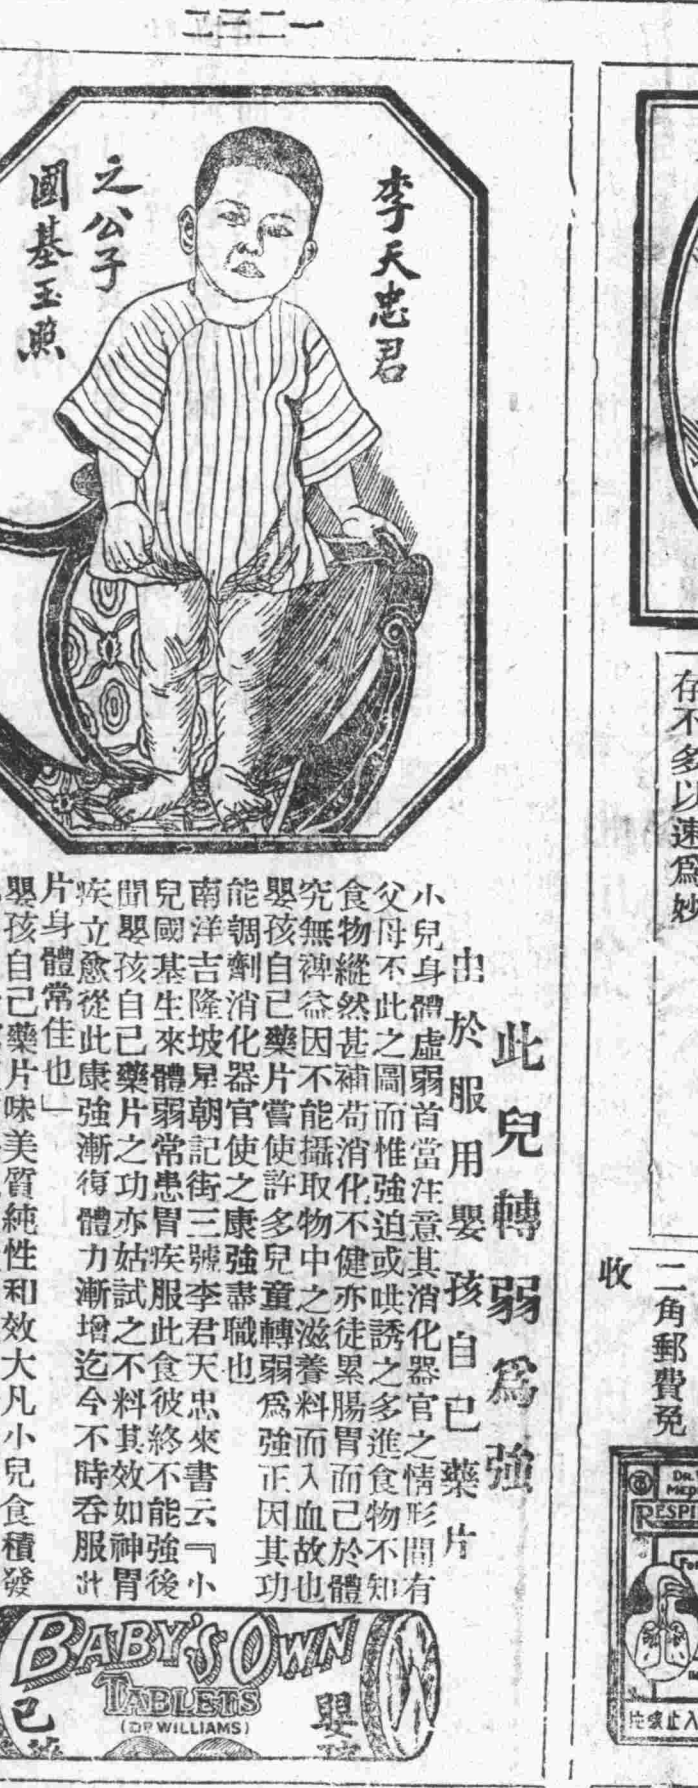 一二三二
李天忠君
之公子
國基玉照
此兒轉弱為強
由於服用嬰孩自己藥片
小兒身體虛弱首當注意其消化器官之情形間有
父母不此之圖而惟強迫或哄誘之多進食物不知
食物縱然甚補苟消化不健亦徒累腸胃而己於體
究無裨益因不能攝取物中之滋養料而入血故也
嬰孩自己藥片嘗使許多兒童轉弱為強正因其功
能調劑消化器官使之康強盡職也
南洋吉隆坡星朝記街三號李君天忠來書云『小
兒國基生來體弱常患胃疾服此食彼終不能強後
聞嬰孩自己藥片之功亦姑試之不料其效如神胃
疾立愈從此康強漸復體力漸增迄今不時吞服此
片身體常佳也」
嬰孩自己藥片味美質純性和效大凡小兒食積發
BABY'S OWN
TABLETS
(DR WILLIAMS)
嬰
己
存不多以速為妙
二角郵費免
收
DR.
MED
RESPI
For
片咳止入